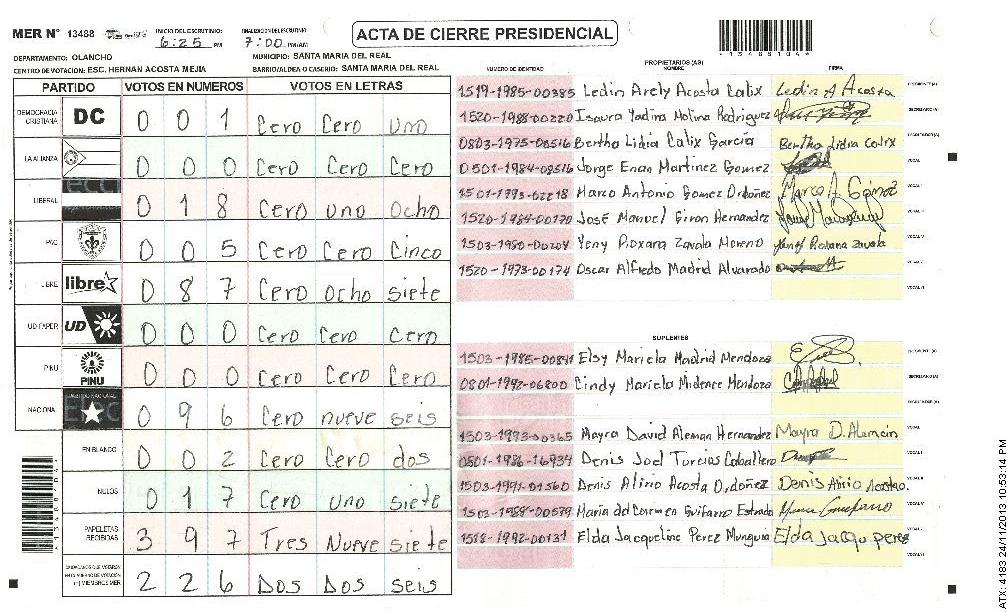 MER N° 13488
INICIO DEL ESCRUTINIO
6:25 PM
FINALIZACION ESCRUTINIO
7:00 PM/AM
ACTA DE CIERRE PRESIDENCIAL
DEPARTAMENTO: OLANCHO
MUNICIPIO: SANTA MARIA DEL REAL
CENTRO DE VOTACION: ESC. HERNAN ACOSTA MEJIA
BARRIO/ALDEA O CASERIO: SANTA MARIA DEL REAL
PARTIDO VOTOS EN NUMEROS VOTOS EN LETRAS
DEMOCRACIA CRISTIANA DC 0 0 1 Cero Cero uno
LA ALIANZA 0 0 0 Cero Cero Cero
LIBERAL 0 1 8 Cero uno Ocho
PAC 0 0 5 Cero Cero Cinco
LIBRE libre 0 8 7 Cero Ocho siete
UD-FAPER UD 0 0 0 Cero Cero Cero
PINU PINU 0 0 0 Cero Cero Cero
NACIONAL PARTIDO NACIONAL 0 9 6 Cero nueve seis
EN BLANCO 0 0 2 Cero Cero dos
NULOS 0 1 7 Cero uno siete
PAPELETAS RECIBIDAS 3 9 7 Tres Nueve siete
2 2 6 Dos Dos seis
PROPIETARIOS (AS)
NUMERO DE IDENTIDAD NOMBRE FIRMA
1519-1985-00385 Ledin Arely Acosta Calix Ledin A Acosta
1520-1988-00220 Isaura Yadira Molina Rodriguez
0803-1975-00516 Bertha Lidia Calix García Bertha Lidia Calix
0501-1984-08516 Jorge Enan Martinez Gomez
1501-1993-02218 Marco Antonio Gomez Ordoñez Marco A Gómez
1520-1984-00170 José Manuel Giron Hernandez
1503-1980-00204 Yeny Roxana Zavala Moreno Yeny Roxana Zavala
1520-1973-00174 Oscar Alfredo Madrid Alvarado
SUPLENTES
1503-1985-00841 Elsy Mariela Madrid Mendoza
0801-1992-06800 Cindy Mariela Midence Mendoza
1503-1973-00365 Mayra David Aleman Hernandez Mayra D. Alemán
0501-1986-16934 Denis Joel Turcios Caballero
1503-1991-01560 Denis Alirio Acosta Ordoñez Denis Alirio Acosta O.
1503-1988-00579 Maria del Carmen Guifarro Estrada
1518-1992-00131 Elda Jacqueline Perez Munguia Elda Jacqu perez
ATX: 4183 24/11/2013 10:53:14 PM